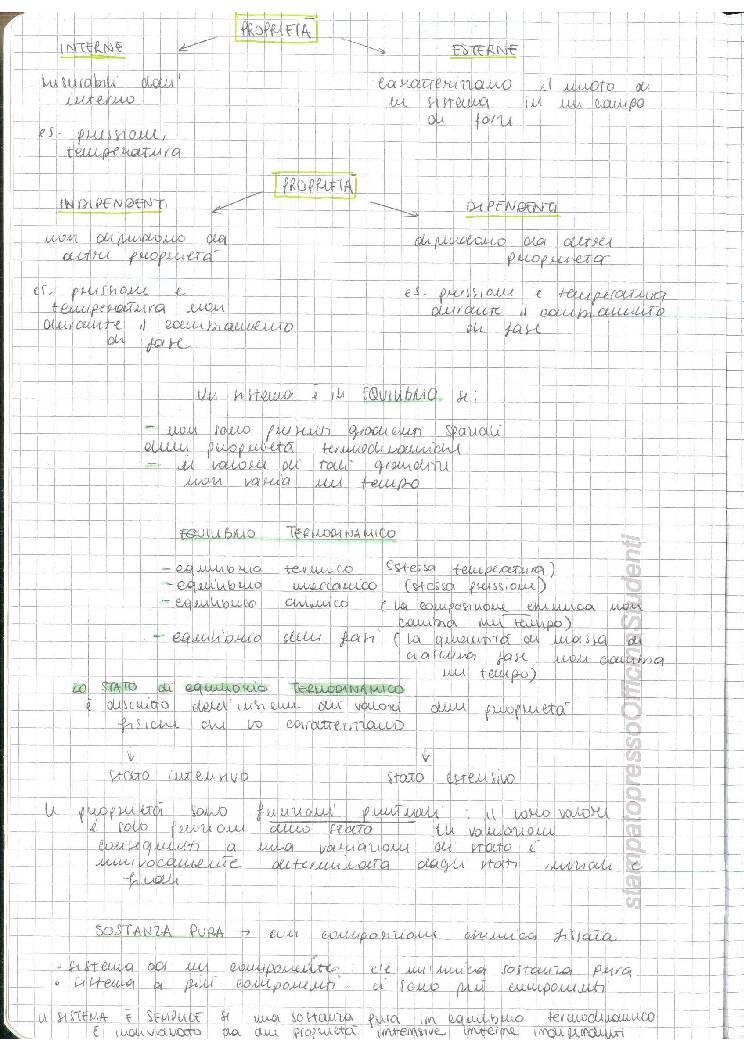 PROPRIETÀ
INTERNE
ESTERNE
misurabili dall'
interno
caratterizzano il moto di
un sistema in un campo
di forze
es. pressione,
temperatura
PROPRIETÀ
INDIPENDENTI
DIPENDENTI
non dipendono da
altre proprietà
dipendono da altre
proprietà
es. pressione e
temperatura non
durante il cambiamento
di fase
es. pressione e temperatura
durante il cambiamento
di fase
Un sistema è in EQUILIBRIO se:
- non sono presenti gradienti spaziali
delle proprietà termodinamiche
- il valore di tali grandezze
non varia nel tempo
EQUILIBRIO TERMODINAMICO
- equilibrio termico (stessa temperatura)
- equilibrio meccanico (stessa pressione)
- equilibrio chimico (la composizione chimica non
cambia nel tempo)
- equilibrio delle fasi (la quantità di massa di
ciascuna fase non cambia
nel tempo)
LO STATO di equilibrio TERMODINAMICO
è descritto dall'insieme dei valori delle proprietà
fisiche che lo caratterizzano
↓ ↓
stato intensivo
stato estensivo
Le proprietà sono funzioni puntuali: il loro valore
è solo funzione dello stato
le variazioni
conseguenti a una variazione di stato è
univocamente determinata dagli stati iniziali e
finali
SOSTANZA PURA → con composizione chimica fissata
- sistema ad un componente: c'è un'unica sostanza pura
• sistema a più componenti: ci sono più componenti
Il SISTEMA È SEMPLICE se una sostanza pura in equilibrio termodinamico
È individuato da due proprietà intensive interne indipendenti
stampatopressoOfficinaStudenti